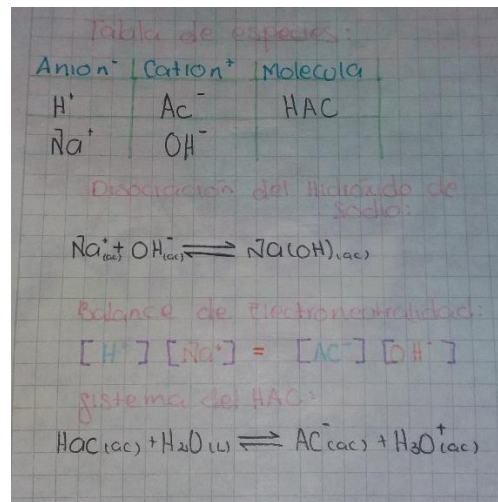 Tabla de especies:
Anion⁻ Cation⁺ Molecula
H⁺ Ac⁻ HAC
Na⁺ OH⁻
Disociación del Hidróxido de
Sodio:
Na⁺(ac) + OH⁻(ac) ⇌ Na(OH)(ac)
Balance de Electroneutralidad:
[H⁺] [Na⁺] = [AC⁻] [OH⁻]
Sistema del HAC:
Hac(ac) + H₂O(L) ⇌ AC⁻(ac) + H₃O⁺(ac)